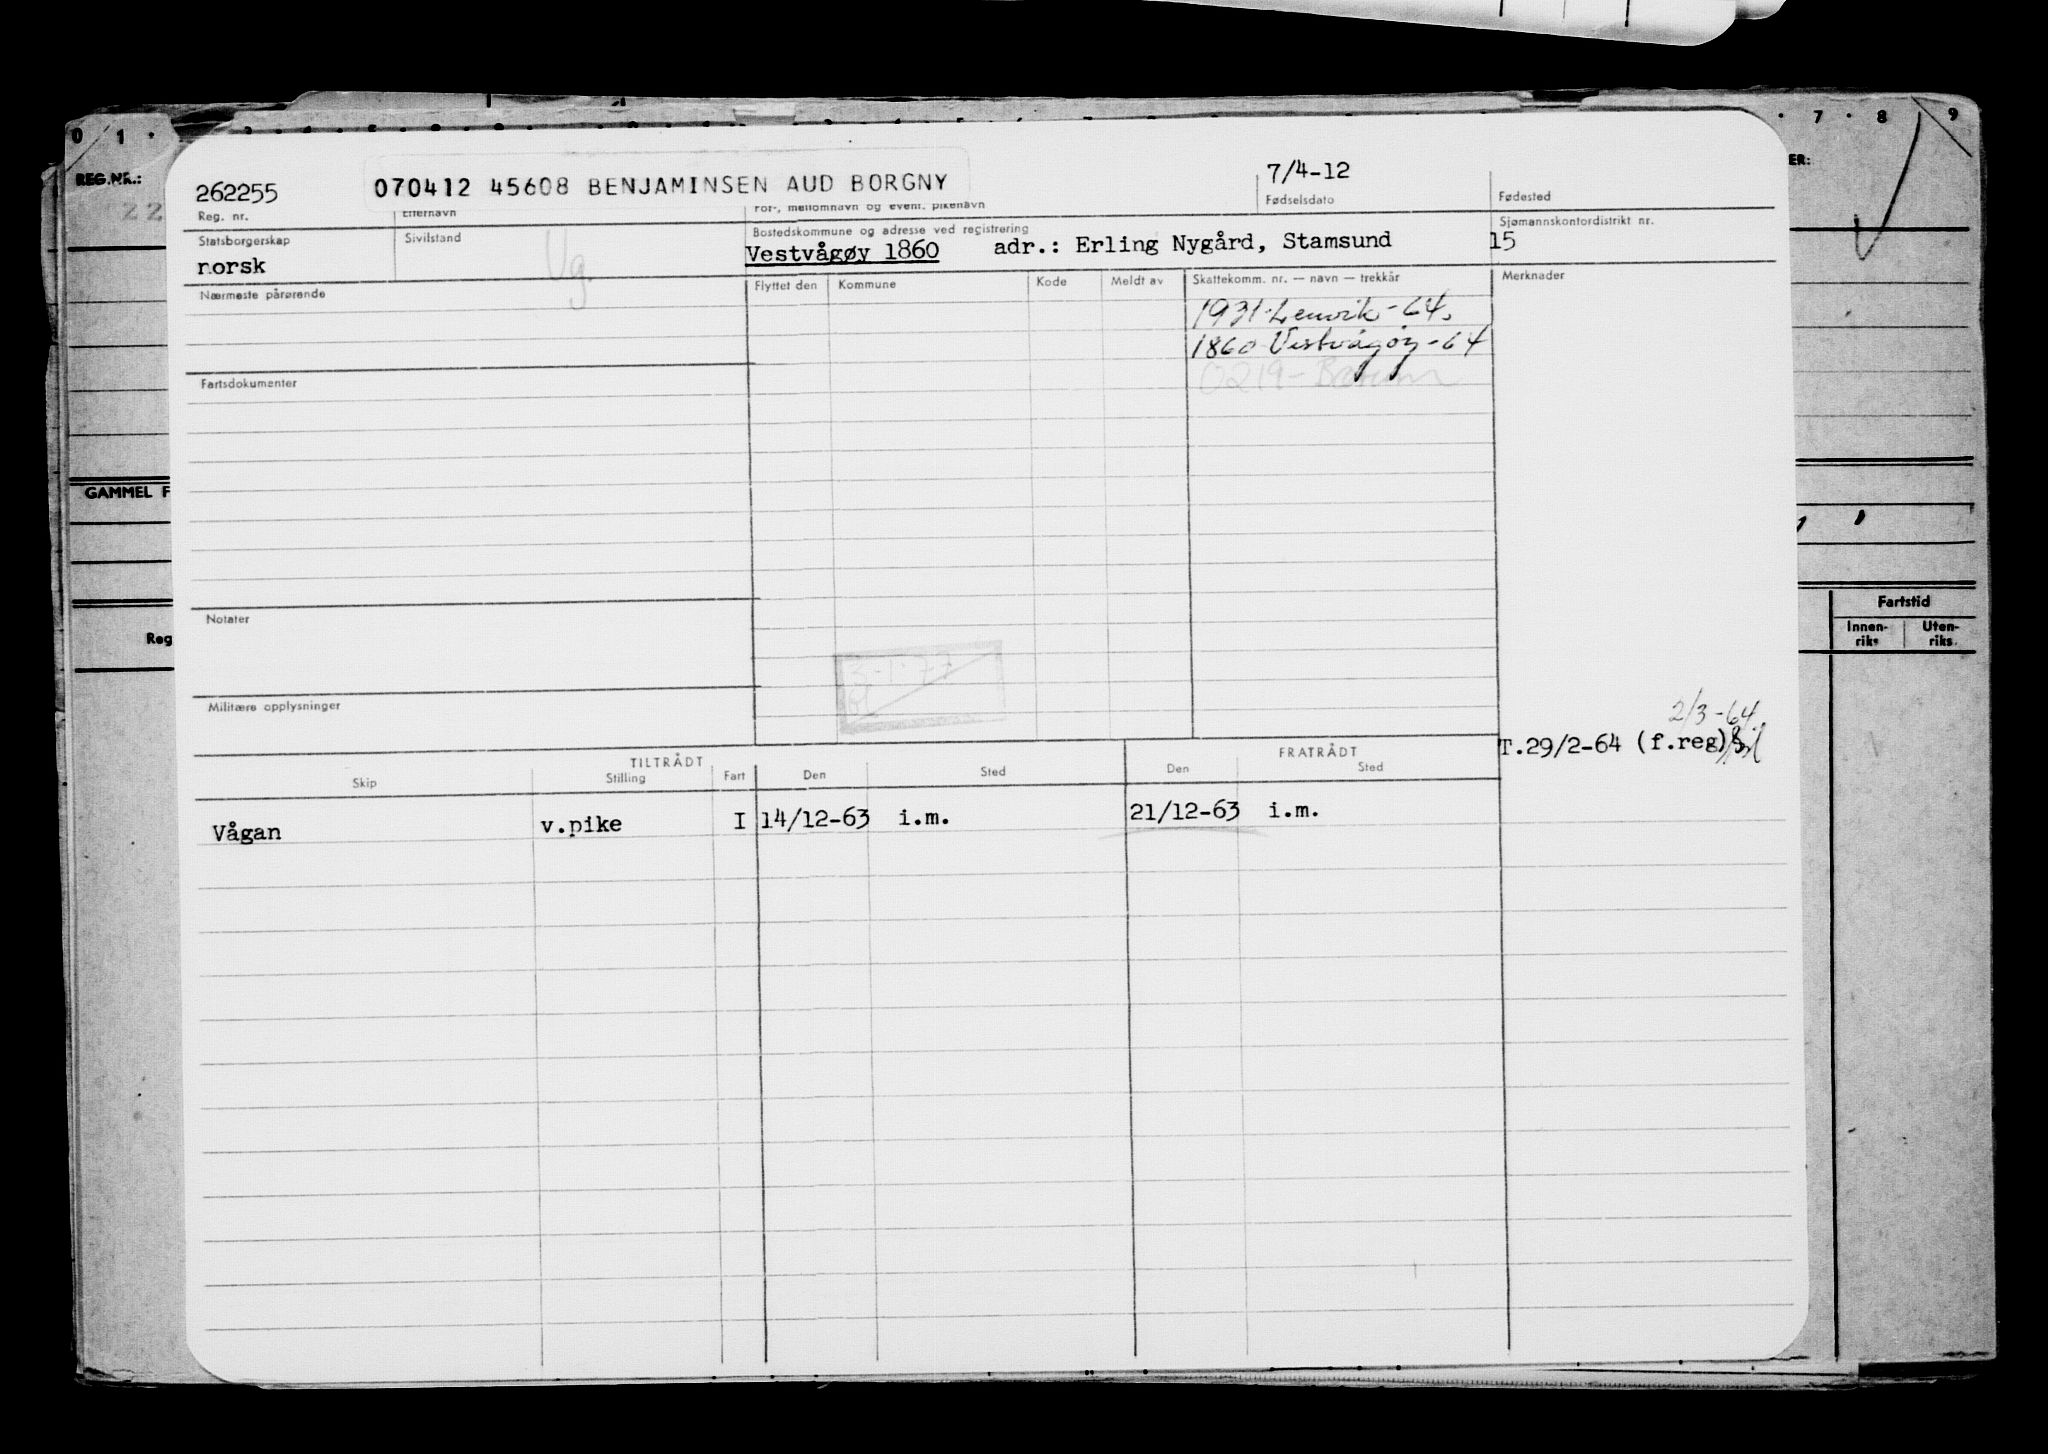 0 1 . 7 . 8 9
REG.NR.:
ER:
22
262255 070412 45608 BENJAMINSEN AUD BORGNY 7/4-12
Reg. nr. Etternavn For-, mellomnavn og event. pikenavn Fødselsdato Fødested
Statsborgerskap Sivilstand Bostedskommune og adresse ved registrering Sjømannskontordistrikt nr.
norsk Vg. Vestvågøy 1860 adr.: Erling Nygård, Stamsund 15
Nærmeste pårørende Flyttet den Kommune Kode Meldt av Skattekomm. nr. — navn — trekkår Merknader
1931-Lenvik-64.
1860 Vestvågøy-64
0219-Bærum
Fartsdokumenter
GAMMEL F
Notater
Reg
Fartstid
Innen-riks Uten-riks.
3-1-77
Militære opplysninger
2/3-64
T.29/2-64 (f.reg)
TILTRÅDT FRATRÅDT
Skip Stilling Fart Den Sted Den Sted
Vågan v.pike I 14/12-63 i.m. 21/12-63 i.m.